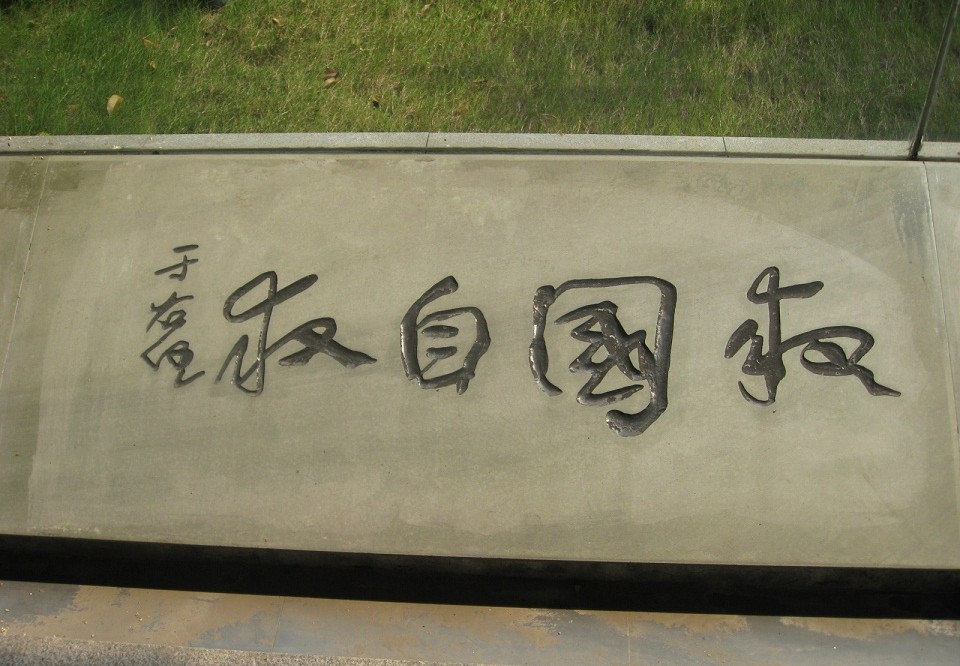 救國自救
于右任